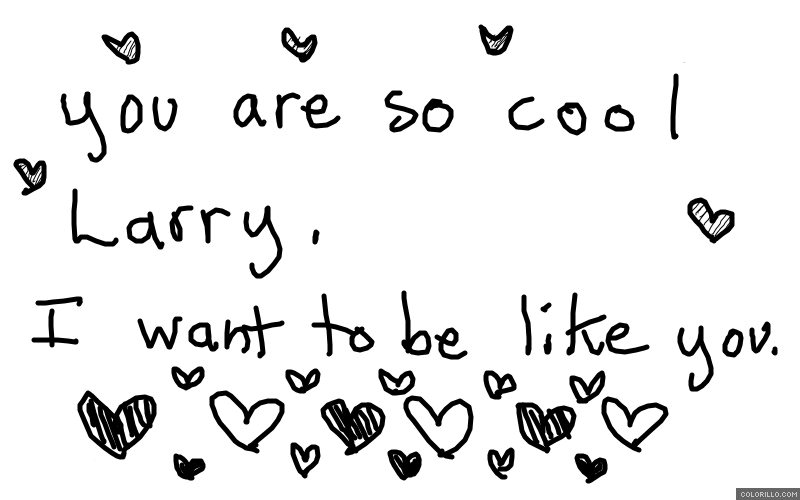 you are so cool
Larry.
I want to be like you.
COLORILLO.COM